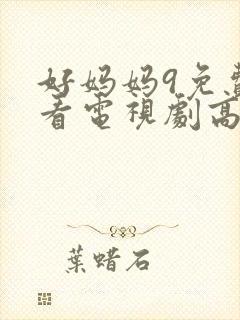 好妈妈9免費
看電視劇高
葉蜡石